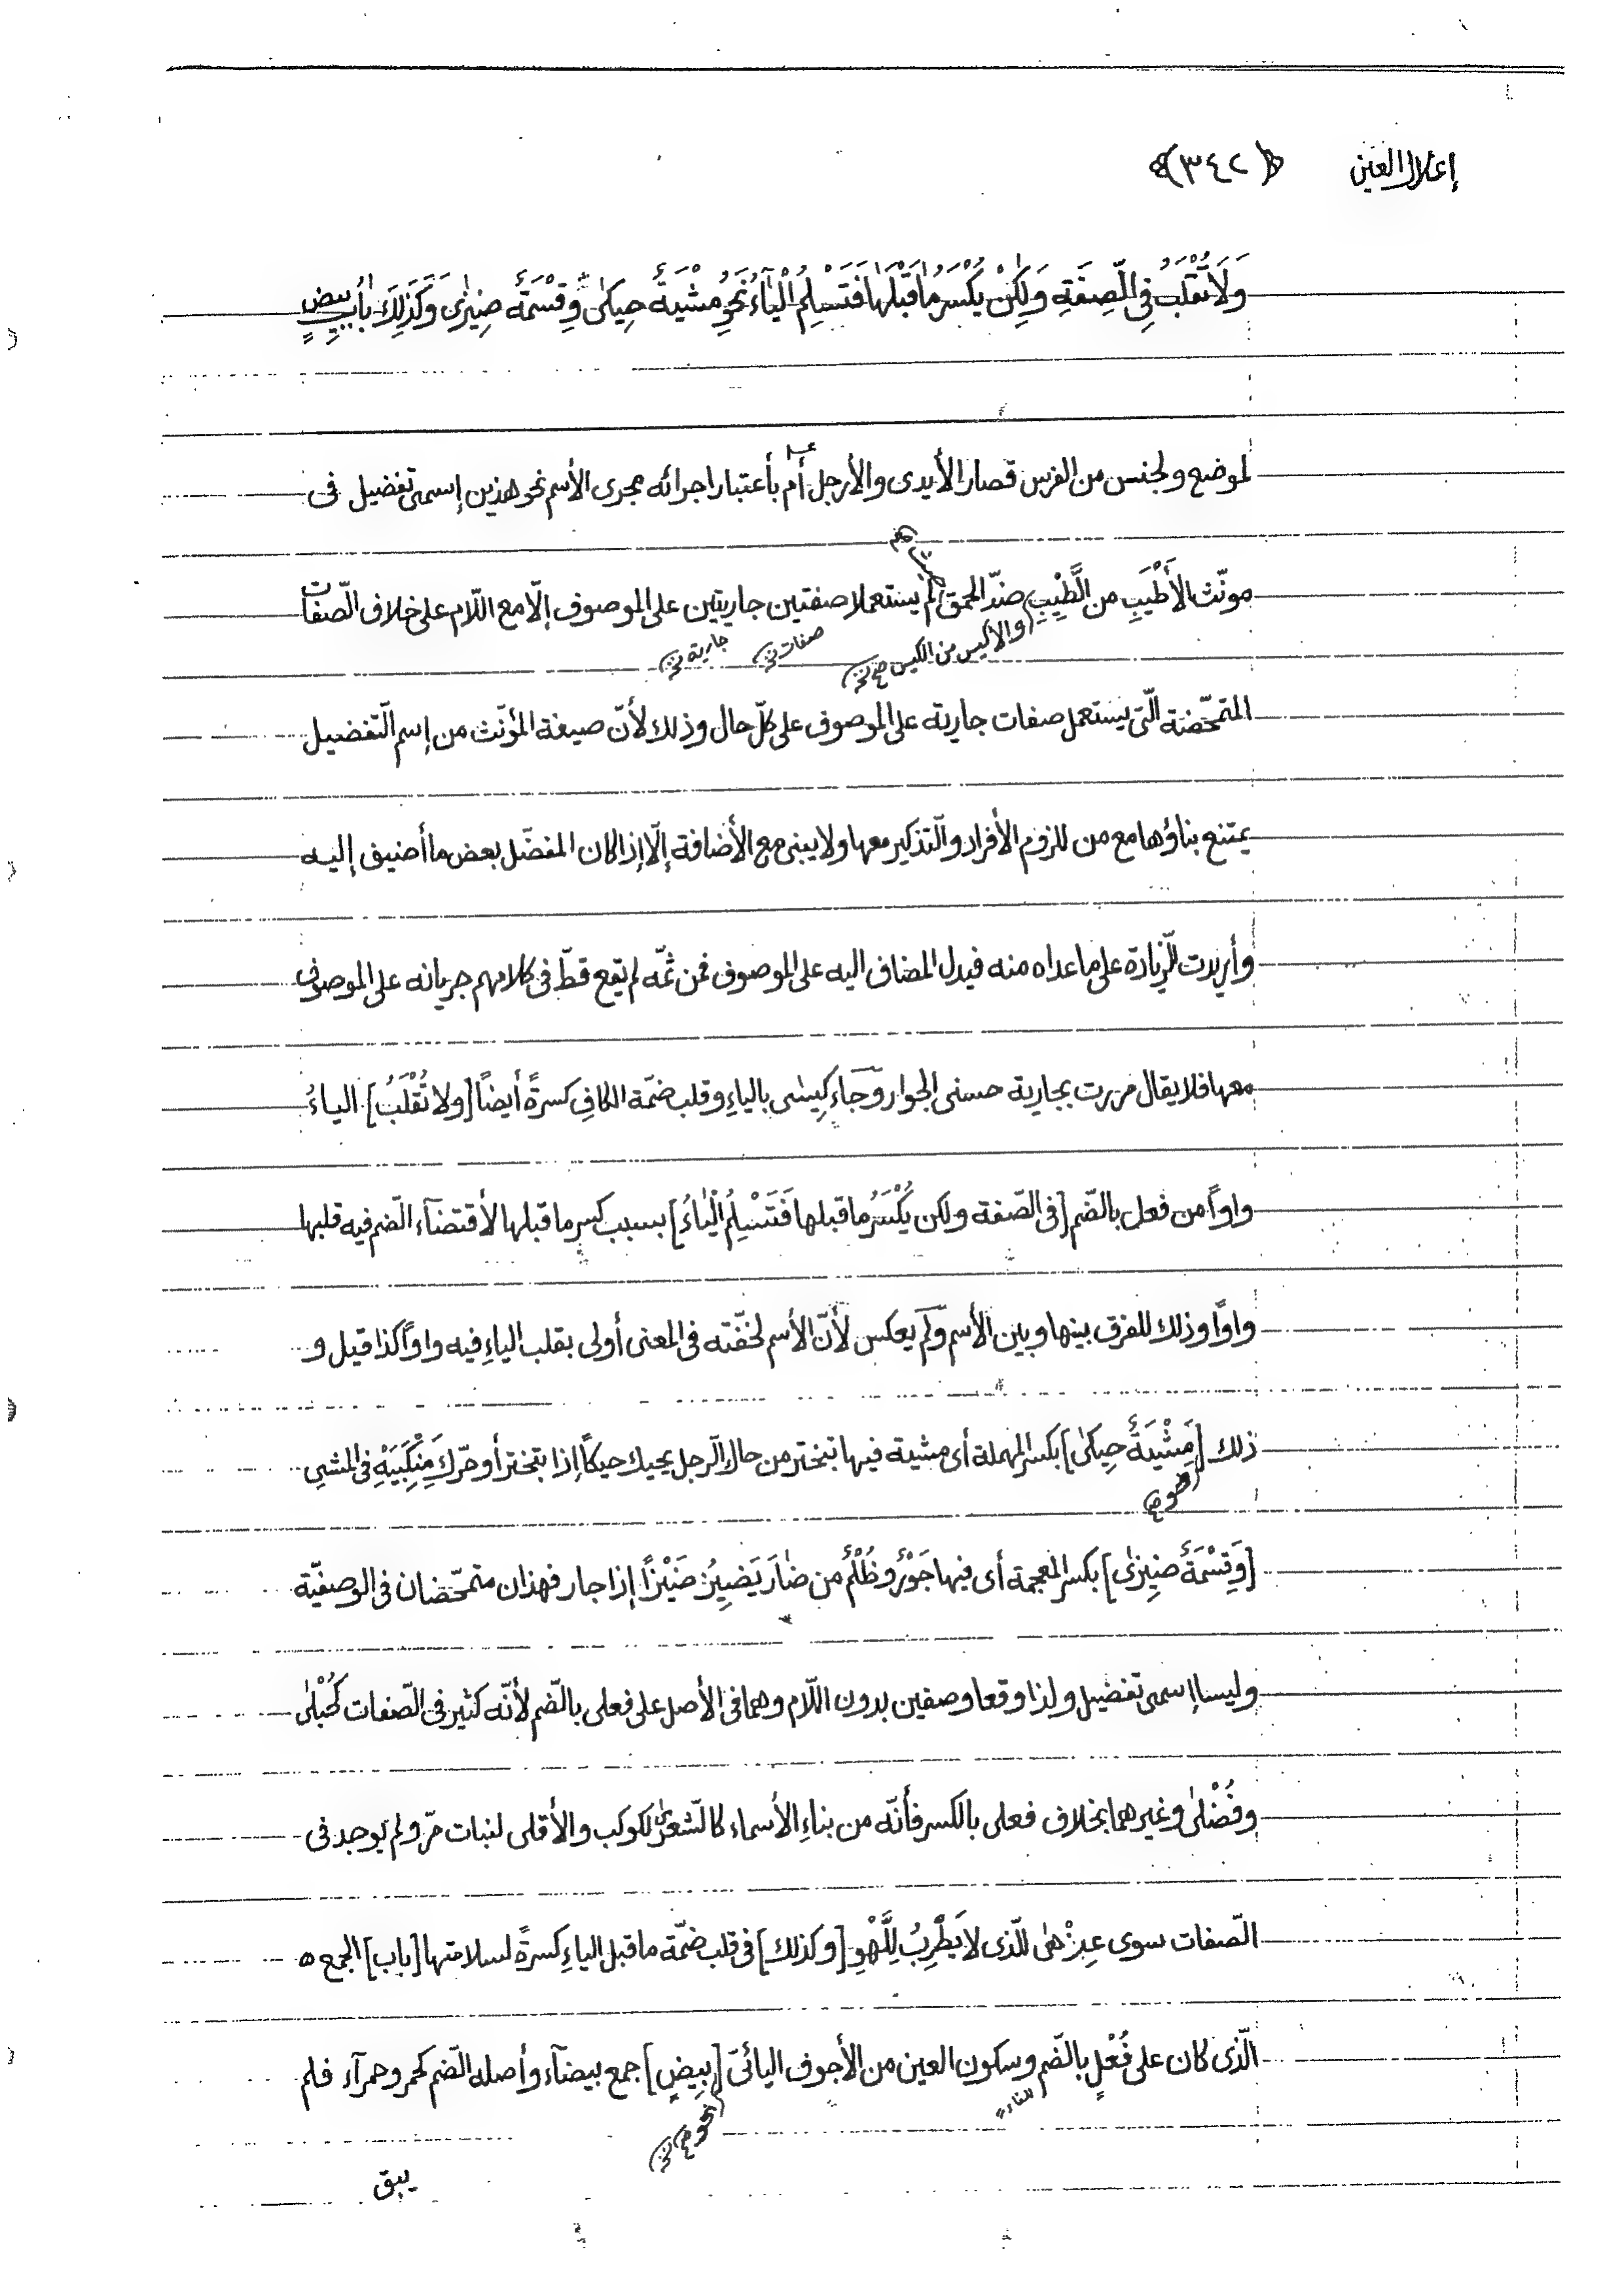 إعلال العين ﴿٣٤٢﴾
وَلَا تُقْلَبُ فِي الصِّفَةِ وَلٰكِنْ يُكْسَرُ مٰا قَبْلَهٰا فَتَسْلَمُ الْيٰآءُ نَحْوُ مِشْيَةٌ حِيكىٰ وَقِسْمَةٌ ضِيزىٰ وَكَذٰلِكَ بٰابُ بِيضٍ
لموضع ولجنس من الفرس قصار الأيدى والأرجل أم بأعتبار اجرائه مجرى الأسم نحو هذين إسمى تفضيل فى
مونّث الأَطْيَبِ من الطَّيِّبِ ضدّ الحمق لم يستعملا صفتين جاريتين على الموصوف إلّا مع اللّام على خلاف الصّفات
(والأكيس من الكيس صح نخ) صفات نخ) جارية نخ)
المتمحّضة الّتى يستعمل صفات جارية على الموصوف على كلّ حال وذلك لأنّ صيغة المؤنّث من إسم التّفضيل
يمتنع بناؤها مع من للزوم الأفراد والتّذكير معها ولا يبنى مع الأضافة إلّا إذا كان المفضّل بعض ما أضيف إليه
وأريدت الزّيادة على ما عداه منه فيدل المضاف اليه على الموصوف فمن ثمّه لم يقع قطّ فى كلامهم جريانه على الموصوف
معها فلا يقال مررت بجارية حسنى الجوار وجَاء كِيسٰى بالياءِ وقلب ضمّة الكافِ كسرةً أيضاً [ولا تُقْلَبُ] الياءُ
واواً من فعل بالضّم [فى الصّفة ولكن يُكْسَرُ ما قبلها فَتَسْلَمُ الْيٰاءُ] بسبب كسر ما قبلها لأقتضآء الضّم فيه قلبها
واوًا وذلك للفرق بينها وبين الأسم ولم يعكس لأنّ الأسم لخفّته فى المعنى أولى بقلب الياءِ فيه واواً كذا قيل و
ذلك [مِشْيَةٌ حِيكىٰ] بكسر المهملة أى مشية فيها تبختر من حاك الرّجل يحيك حيكاً إذا تبختر أو حرّك مَنْكِبَيْهِ فى المشىِ
[وَقِسْمَةٌ ضِيزىٰ] بكسر المعجمة أى فيها جَوْرٌ وظُلْمٌ من ضٰازَ يَضِيزُ ضَيْزًا إذا جار فهذان متمحّضان فى الوصفيّة
وليسا إسمى تفضيل ولذا وقعا وصفين بدون اللّام وهما فى الأصل على فعلى بالضّم لأنّه كثير فى الصّفات كَحُبْلىٰ
وفُضْلىٰ وغيرهما بخلاف فعلى بالكسر فأنّه من بناءِ الأسماء كالشّعرىٰ لكوكب والأقلى لنبات مرّ ولم يوجد فى
الصّفات سوى عِزْهىٰ للّذى لا يَطْرِبُ لِلَّهْوِ [وكذلك] فى قلب ضمّة ما قبل الياءِ كسرةً لسلامتها [باب] الجمع
الّذى كان على فُعْلٍ بالضّم وسكون العين من الأجوف اليائىّ [بِيضٍ] جمع بيضآء وأصله الضّم كحمر وحمرآء فلم
للفاء
(نحو صح نخ)
يبق